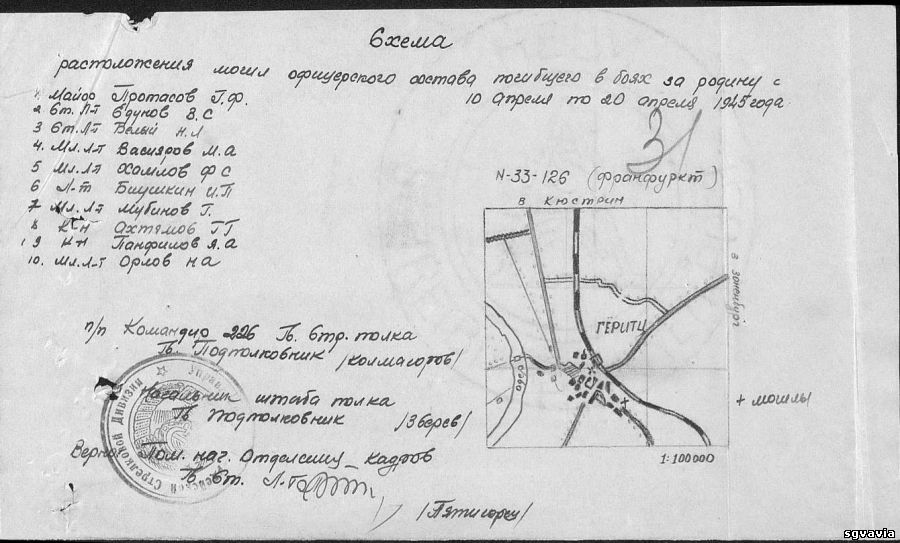 Схема
расположения могил офицерского состава погибшего в боях за родину с
10 апреля по 20 апреля 1945 года
1. Майор Протасов Г.Ф.
2 Ст. Л-т Едунов В.С
3 Ст. Л-т Белый Н.Л
4. Мл. Л-т Васияров М.А
5 Мл. Л-т Хамлов Ф С
6 Л-т Биушкин И.П
7 Мл. Л-т Мубинов Г.
8 К-н Ахтямов Г Г
9 К-н Панфилов Я.А
10. Мл. Л-т Орлов Н А
31
N-33-126 (Франфуркт)
в Кюстрин
в Зоненбург
ГЕРИТЦ
Одер
+ могилы
1:100000
п/п Командир 226 Гв. Стр. полка
Гв. Подполковник /Колмагоров/
Начальник штаба полка
Гв Подполковник /Зверев/
Верно: Пом. нач. Отделения кадров
Гв. Ст. Л-т
/Пятигорец/
Стрелковой Дивизии
sgvavia